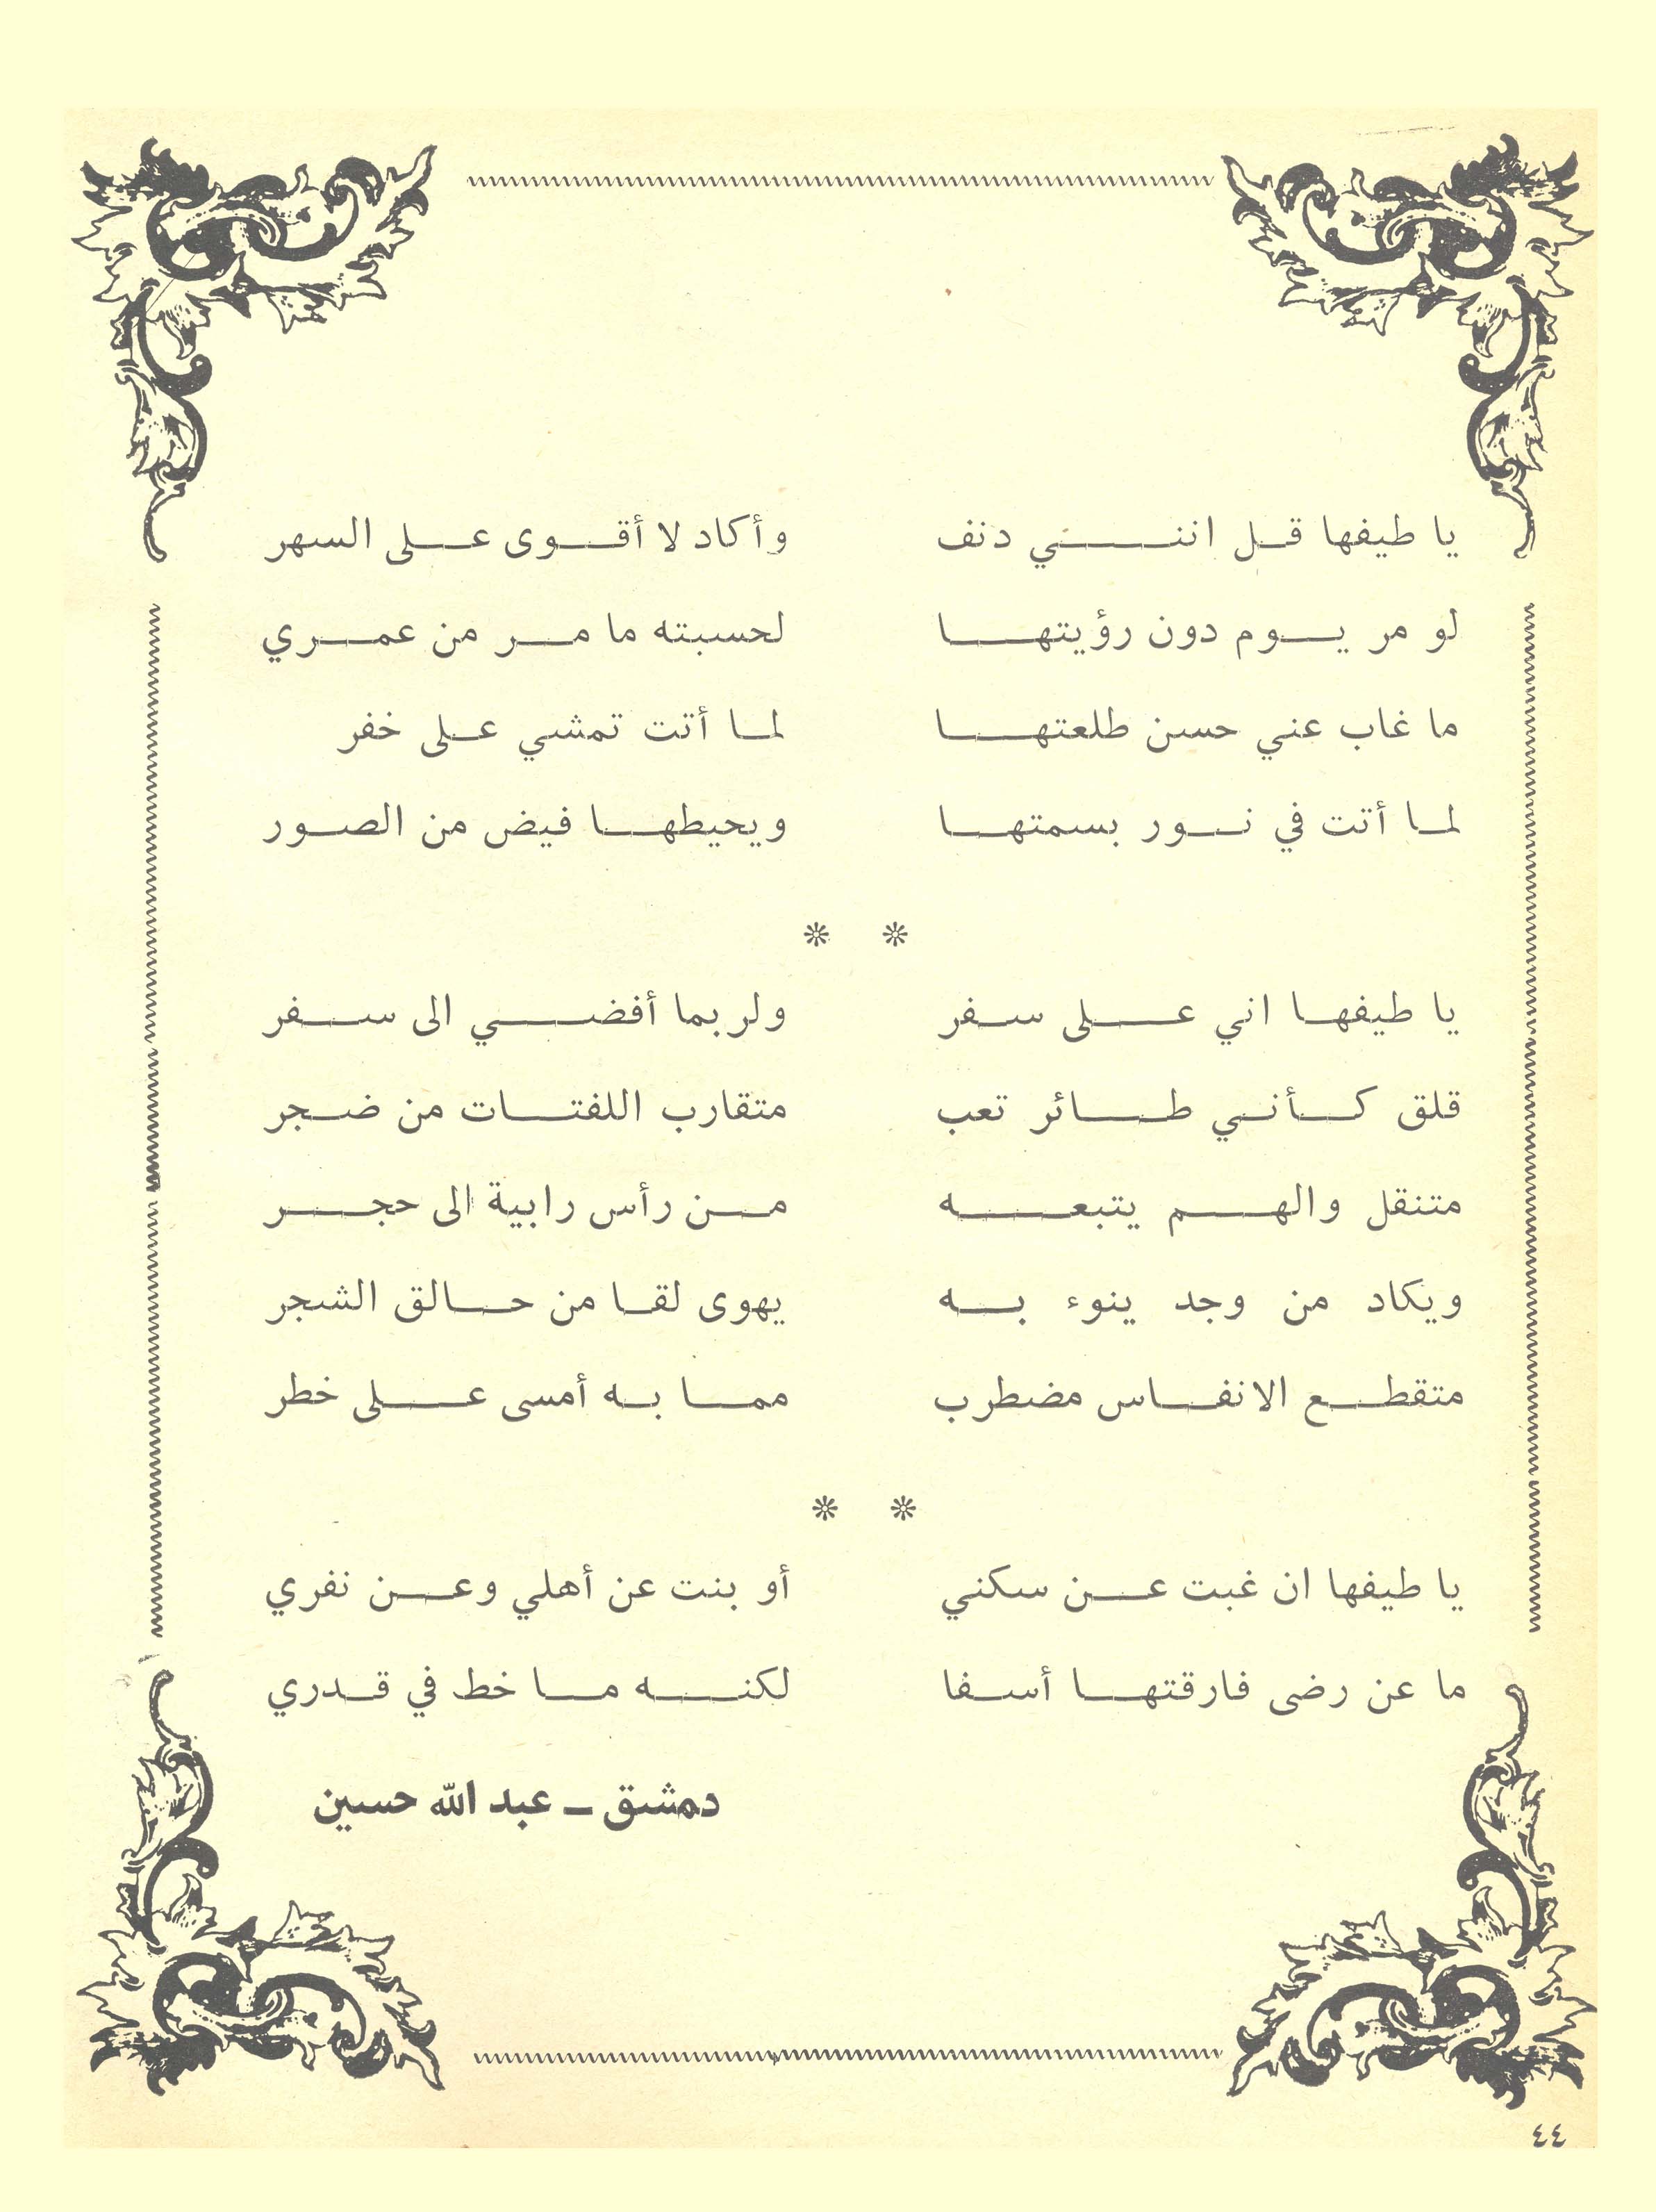 يا طيفها قل انني دنف وأكاد لا أقوى على السهر
لو مر يوم دون رؤيتها لحسبته ما مر من عمري
ما غاب عني حسن طلعتها لما أتت تمشي على خفر
لما أتت في نور بسمتها ويحيطها فيض من الصور
* *
يا طيفها اني على سفر ولربما أفضي الى سفر
قلق كأني طائر تعب متقارب اللفتات من ضجر
متنقل والهم يتبعه من رأس رابية الى حجر
ويكاد من وجد ينوء به يهوى لقا من حالق الشجر
متقطع الانفاس مضطرب مما به أمسى على خطر
* *
يا طيفها ان غبت عن سكني أو بنت عن أهلي وعن نفري
ما عن رضى فارقتها أسفا لكنه ما خط في قدري
دمشق ـ عبد الله حسين
٤٤